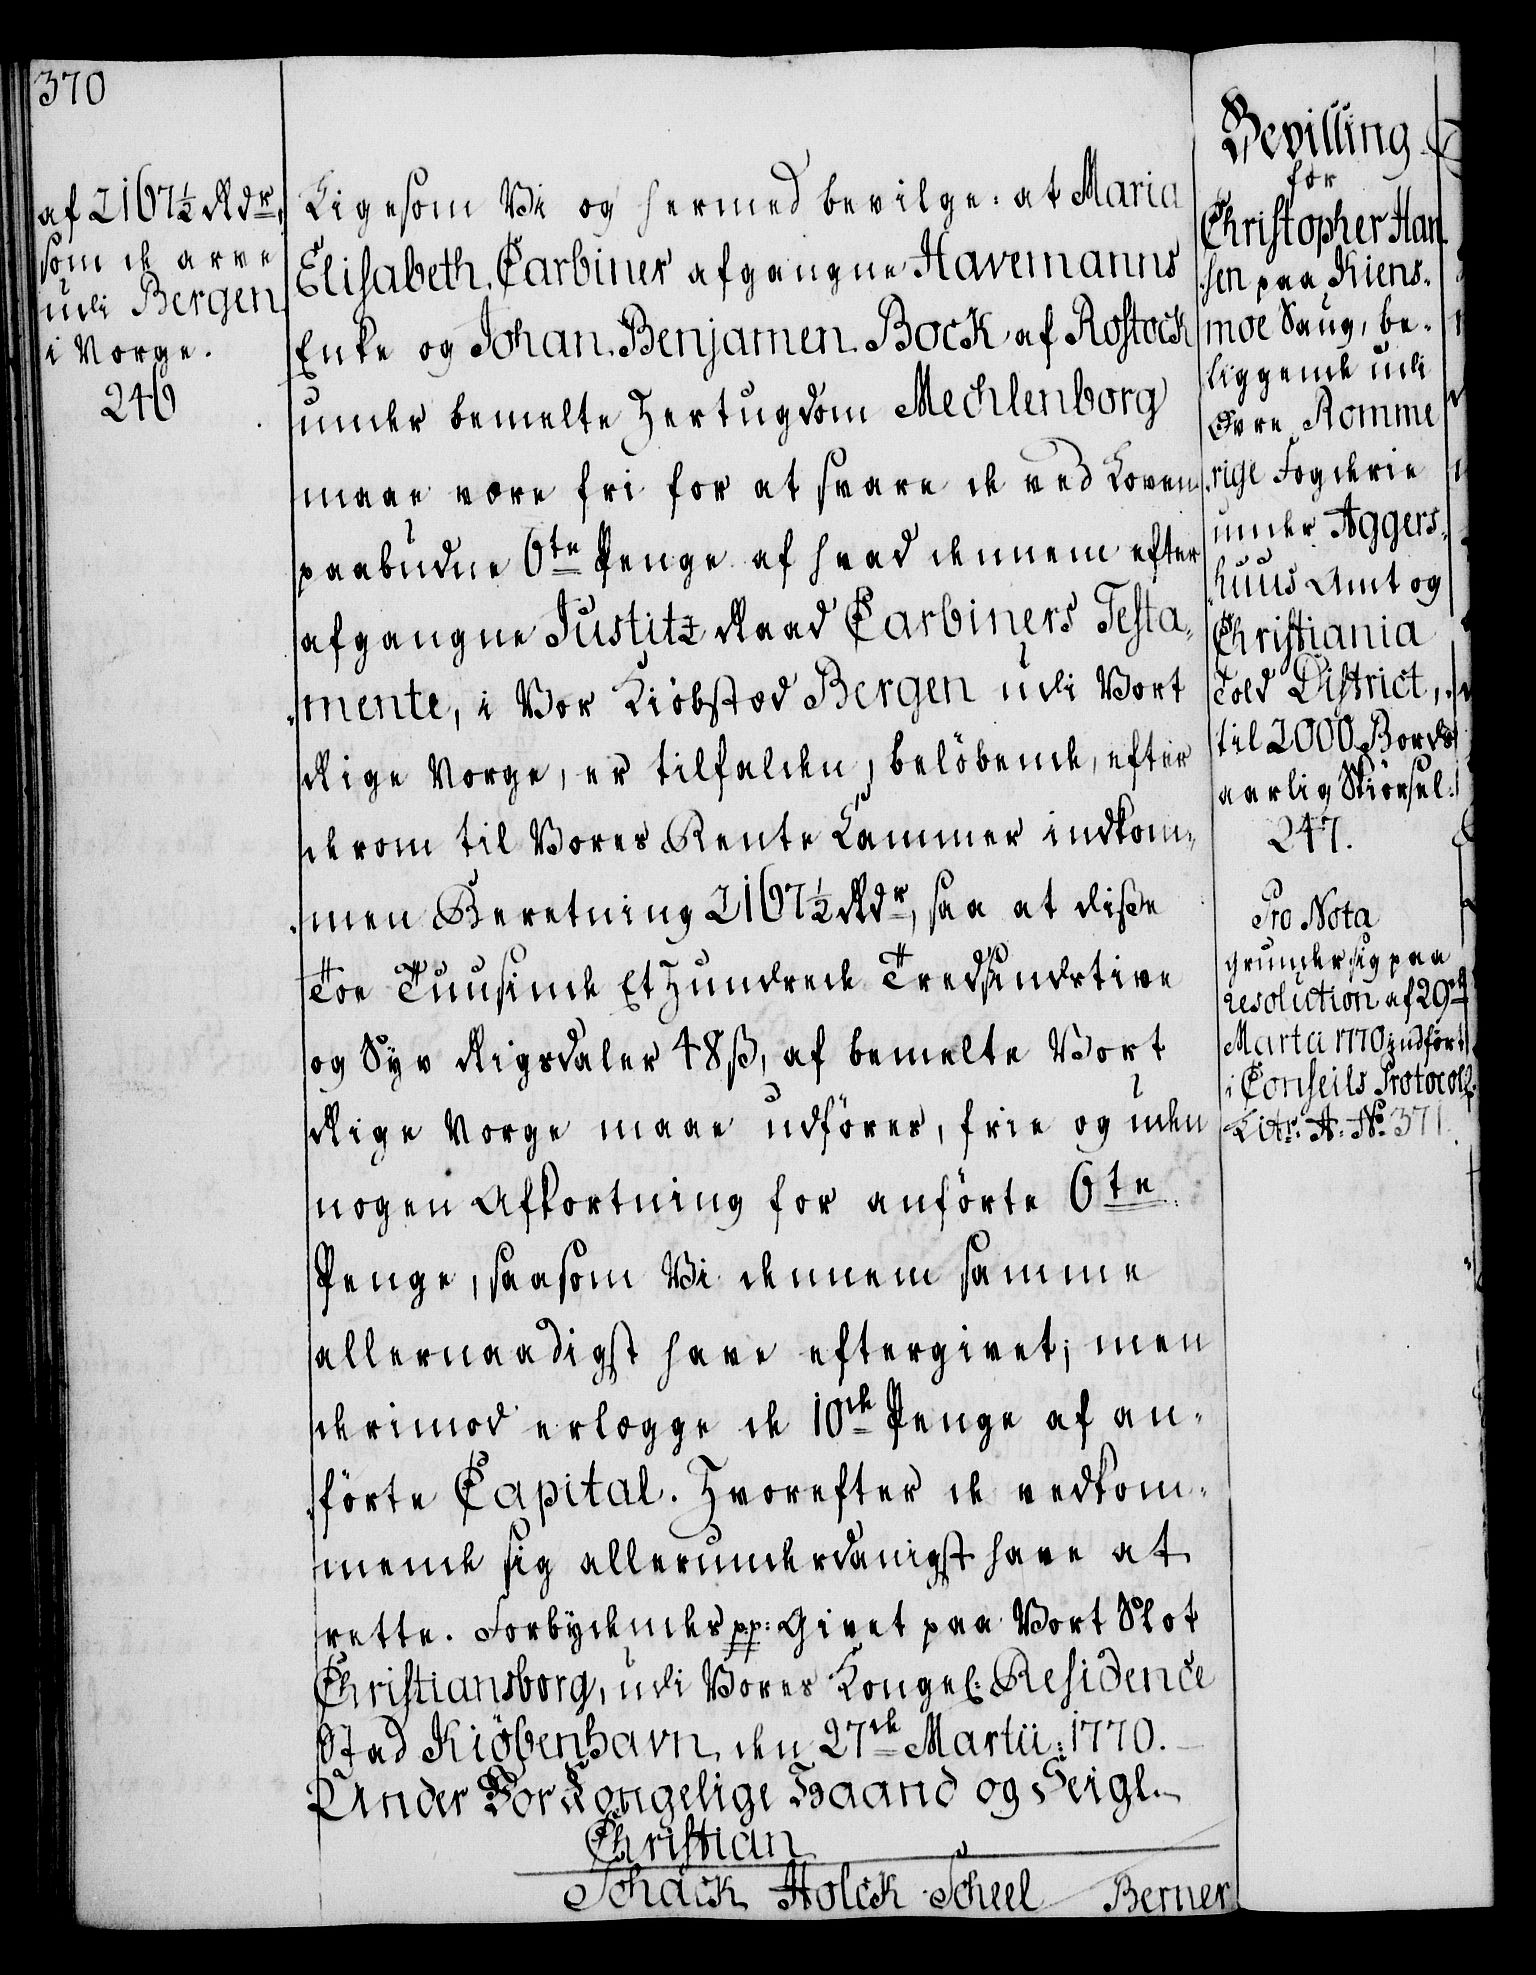 370
af 2167½ Rdr,
som de arve
udi Bergen
i Norge.
246
Ligesom Vi og hermed bevilge: at Maria
Elisabeth Carbiner afgangne Havemanns
Enke og Johan Benjamen Bock af Rostock
under bemelte Hertugdom Mechlenborg
maae være fri for at svare de ved Loven
paabudne 6te Penge af hvad dennem efter
afgangne Justitz Raad Carbiners Testa-
mente, i Vor Kiöbstæd Bergen udi Vort
Rige Norge, er tilfalden, belöbende, efter
derom til Vores Rente Kammer indkom-
men Beretning 2167½ Rdr, saa at diße
Toe Tuusinde Et Hundrede Tredsindstive
og Syv Rigsdaler 48 ß, af bemelte Vort
Rige Norge maae udföres, frie og uden
nogen Afkortning for anförte 6te
Penge, saasom Vi dennem samme
allernaadigst have eftergivet; men
derimod erlægge de 10de Penge af an-
förte Capital. Hvorefter de vedkom-
mende sig allerunderdanigst have at
rette. Forbydendes pp: Givet paa Vort Slot
Christiansborg, udi Vores Kongel: Residence
Stad Kiöbenhavn, den 27de Martii: 1770.
Under Vor Kongelige Haand og Seigl.
Christian
Schack Holck Scheel Berner
Bevilling
for
Christopher Han-
sen paa Kiens-
moe Saug, be-
liggende udi
Övre Romme-
rige Fogderie
under Aggers-
huus Amt og
Christiania
Told District,
til 2000 Bords
aarlig Skiörsel.
247.
Pro Nota
grunder sig paa
resolution af 29de
Martii 1770 indfört
i Conseils Protocoll
Litr: A. No. 371.